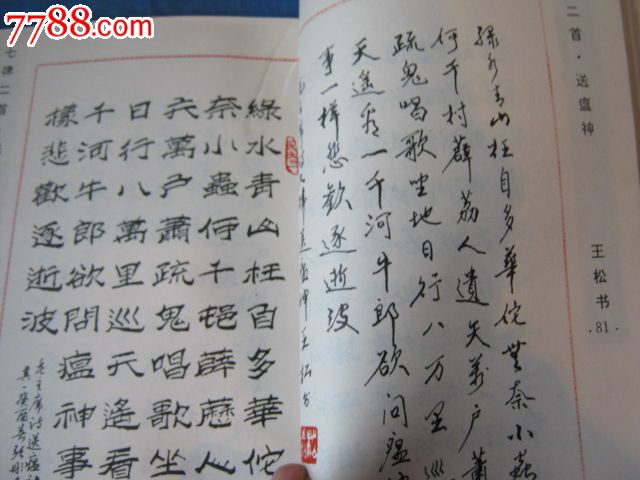 7788.com
二首·送瘟神
王松书
·81·
绿水青山枉自多華佗無奈小蟲
何千村薜荔人遺矢萬戶蕭
疏鬼唱歌坐地日行八万里巡
天遥看一千河牛郎欲问瘟
事一样悲歡逐逝波
王松书
七律二首·送
綠水青山枉自多華佗
奈小蟲何千邨薜荔人
矢萬戶蕭疏鬼唱歌坐
日行八萬里巡天遙看
千河牛郎欲問瘟神事
樣悲歡逐逝波
毛主席诗送瘟
其二癸酉春张彤